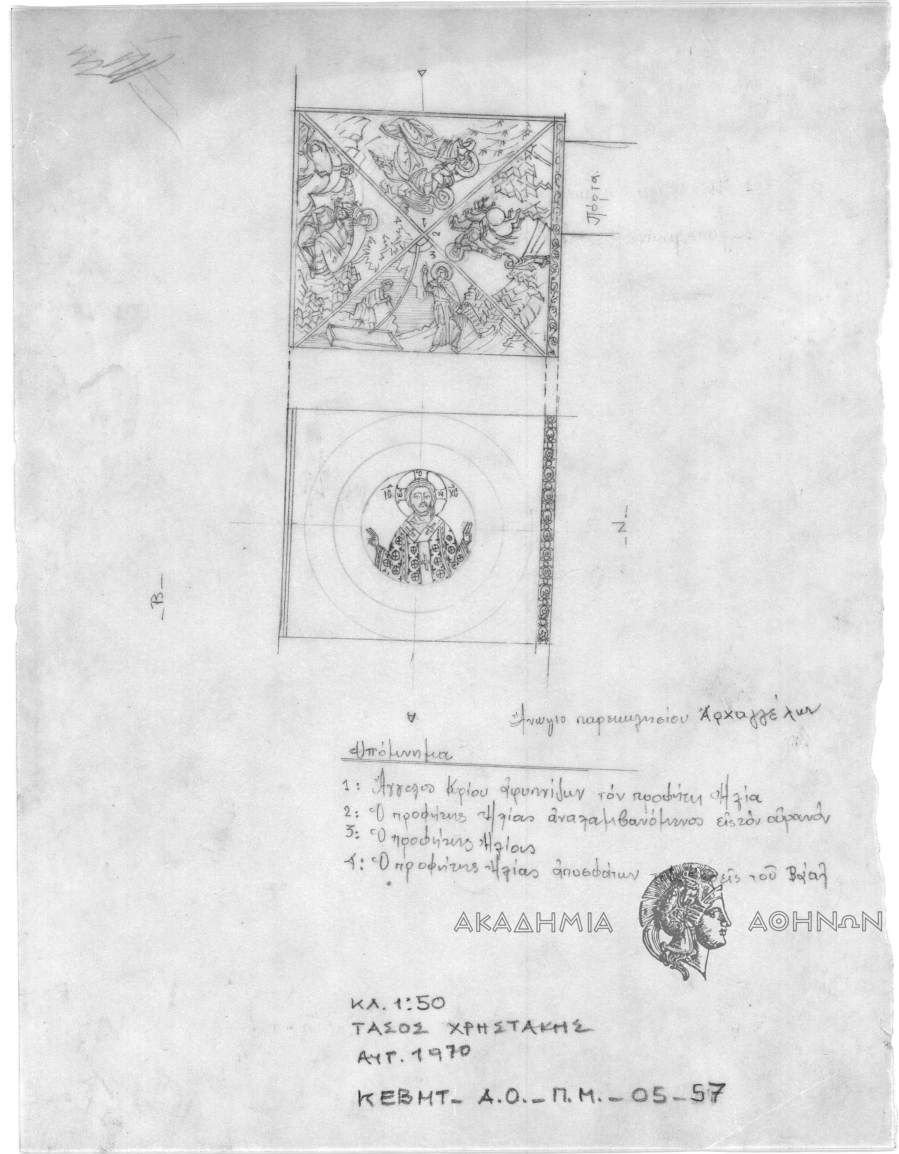 Πόρτα
1
2
3
4
ΙC ΧC
Ο Ω Ν
-Ν-
-Β-
Ἀνώγιο παρεκκλησίου Ἀρχαγγέλων
Ὑπόμνημα
1: Ἄγγελος Κρίου ἀφυπνίζων τόν προφήτη Ἠλία
2: Ὁ προφήτης Ἠλίας ἀναλαμβανόμενος εἰς τόν οὐρανόν
3: Ὁ προφήτης Ἠλίας
4: Ὁ προφήτης Ἠλίας ἀποσφάτων τοῦ Βάαλ
ΑΚΑΔΗΜΙΑ ΑΘΗΝΩΝ
ΚΛ. 1:50
ΤΑΣΟΣ ΧΡΗΣΤΑΚΗΣ
ΑΥΓ. 1970
ΚΕΒΜΤ- Α.Ο.- Π.Μ.- 05-57